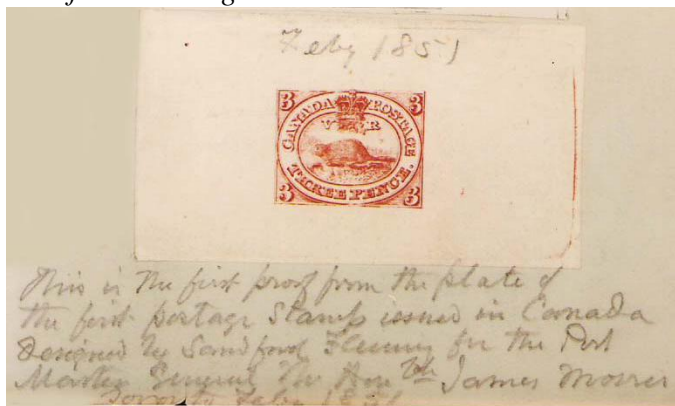 Feby 1851
3 3
CANADA POSTAGE
V R
THREE PENCE.
3 3
This is the first proof from the plate of
the first postage Stamp issued in Canada
Designed by Sandford Fleming for the Post
Master General the Honble James Morris
Toronto Feby 1851